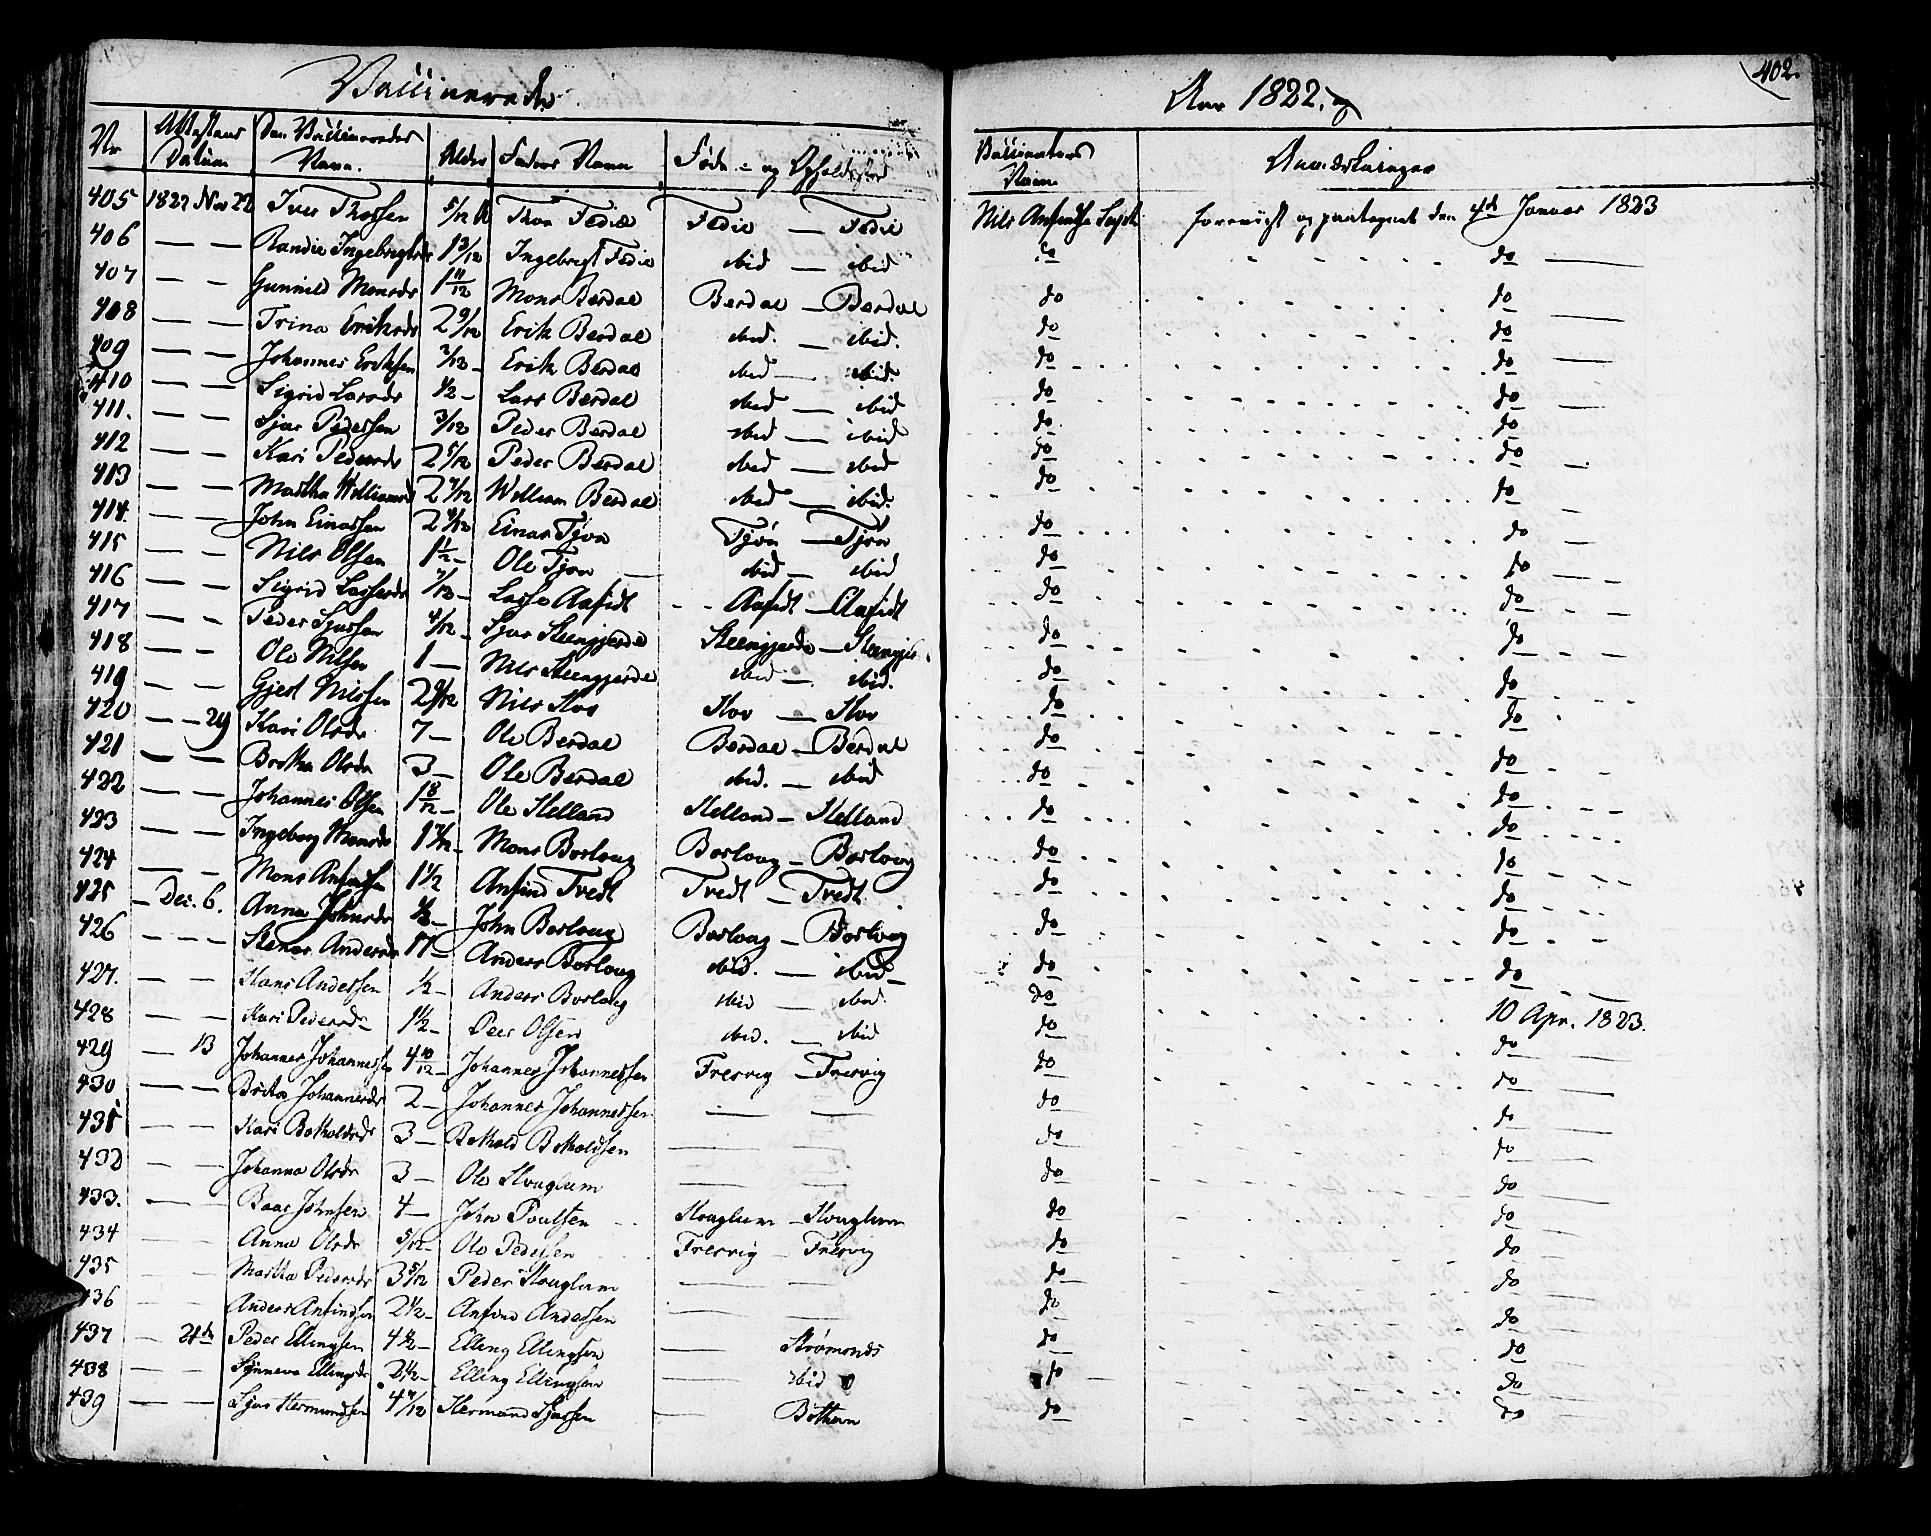 Vaccinerede
Aar 1822.
402.
Nr Attestens Datum Den Vaccineredes Navn. Alder Faders Navn Føde- og Opholdssted Vaccinateurs Navn Anmerkninger
405 1822 Nov 22 Iver Thorsen 5/12 Thor Fedie Fedie — Fedie Nils foreviist og paategnet den 4de Januar 1823
406 — — Randie Ingebrigtsdr 1 3/12 Ingebrigt Fedie ibid — ibid do do
407 — — Gunnild Monsdr 1 11/12 Mons Berdal Berdal — Berdal do do
408 — — Trina Eriksdr 2 9/12 Erik Berdal ibid. — ibid. do do
409 — — Johannes Eriksen 2/12 Erik Berdal ibid — ibid. do do
410 — — Sigrid Larsdr 1/2 Lars Berdal ibid — ibid do do
411. — — Sjur Pedersen 3/12 Peder Berdal ibid — ibid do do
412 — — Kari Pedersdr 2 5/12 Peder Berdal ibid — ibid do do
413 — — Martha Williamsd 2 7/12 William Berdal ibid — ibid. do do
414. — — John Einarsen 2 4/12 Einar Tjøn Tjøn — Tjøn do do
415 — — Nils Olsen 1 1/2 Ole Tjøn ibid — ibid do do
416 — — Sigrid Lassesdr 7/12 Lasse Aafedt Aafedt — Aafedt do do
417 — — Peder Sjursen 4/12 Sjur Steengjerde Steengjerde — Steengje do do
418 — — Ole Nilsen 1 — Nils Steengjerde ibid — ibid. do do
419 — — Gjert Nilssen 2 9/12 Nils Hov Hov — Hov do do
420 — — 29 Kari Olsdr 7 — Ole Berdal Berdal — Berdal do do
421 — — Brita Olsdr 3 — Ole Berdal ibid. — ibid do do
422 — — Johannes Olsen 1 8/12 Ole Helland Helland — Helland do do
423 — — Ingeborg Monsdr Mons Borlaug Borlaug — Borlaug do do
424 — — Mons Anfinsen 1 1/2 Anfind Tvedt Tvedt — Tvedt do do
425 — Dec. 6. Anna Johnsdr John Borlaug Borlaug — Borlaug do do
426 — — — Anders Borlaug ibid. — ibid do do
427. — — Hans Andersen 1/2 Anders Borlaug ibid — ibid do 10 Apr. 1823.
428 — — Kari Pedersdr 1 1/2 Peer Olsen ibid. — ibid do do
429 — 13 Johannes Johannessen 4 10/12 Johannes Johannessen Fresvig — Fresvig do do
430 — — Brita Johannesdr 2 — Johannes Johannessen — — do do
431 — — Kari Botholdsdr 3 — Bothold Botholdsen — — do do
432 — — Johanna Olsdr 3 — Ole — — do do
433. — — Baar Johnsen 4 — John Poulsen do do
434 — — Anna Olsdr 5/12 Ole Pedersen Fresvig — Fresvig do do
435 — — Martha Pedersdr 3 5/12 Peder — — do do
436 — — Anders Anfindsen 2 1/2 Anfind Andersen — — do do
437 — 21de Peder Ellingsen Elling Ellingsen — Strømonds do do
438 — — Synneva Ellingsdr 2 1/2 Elling Ellingsen — ibid do do
439 — — Sjur Hermundsen 4 7/12 Hermund Sjursen — Bøthun do do